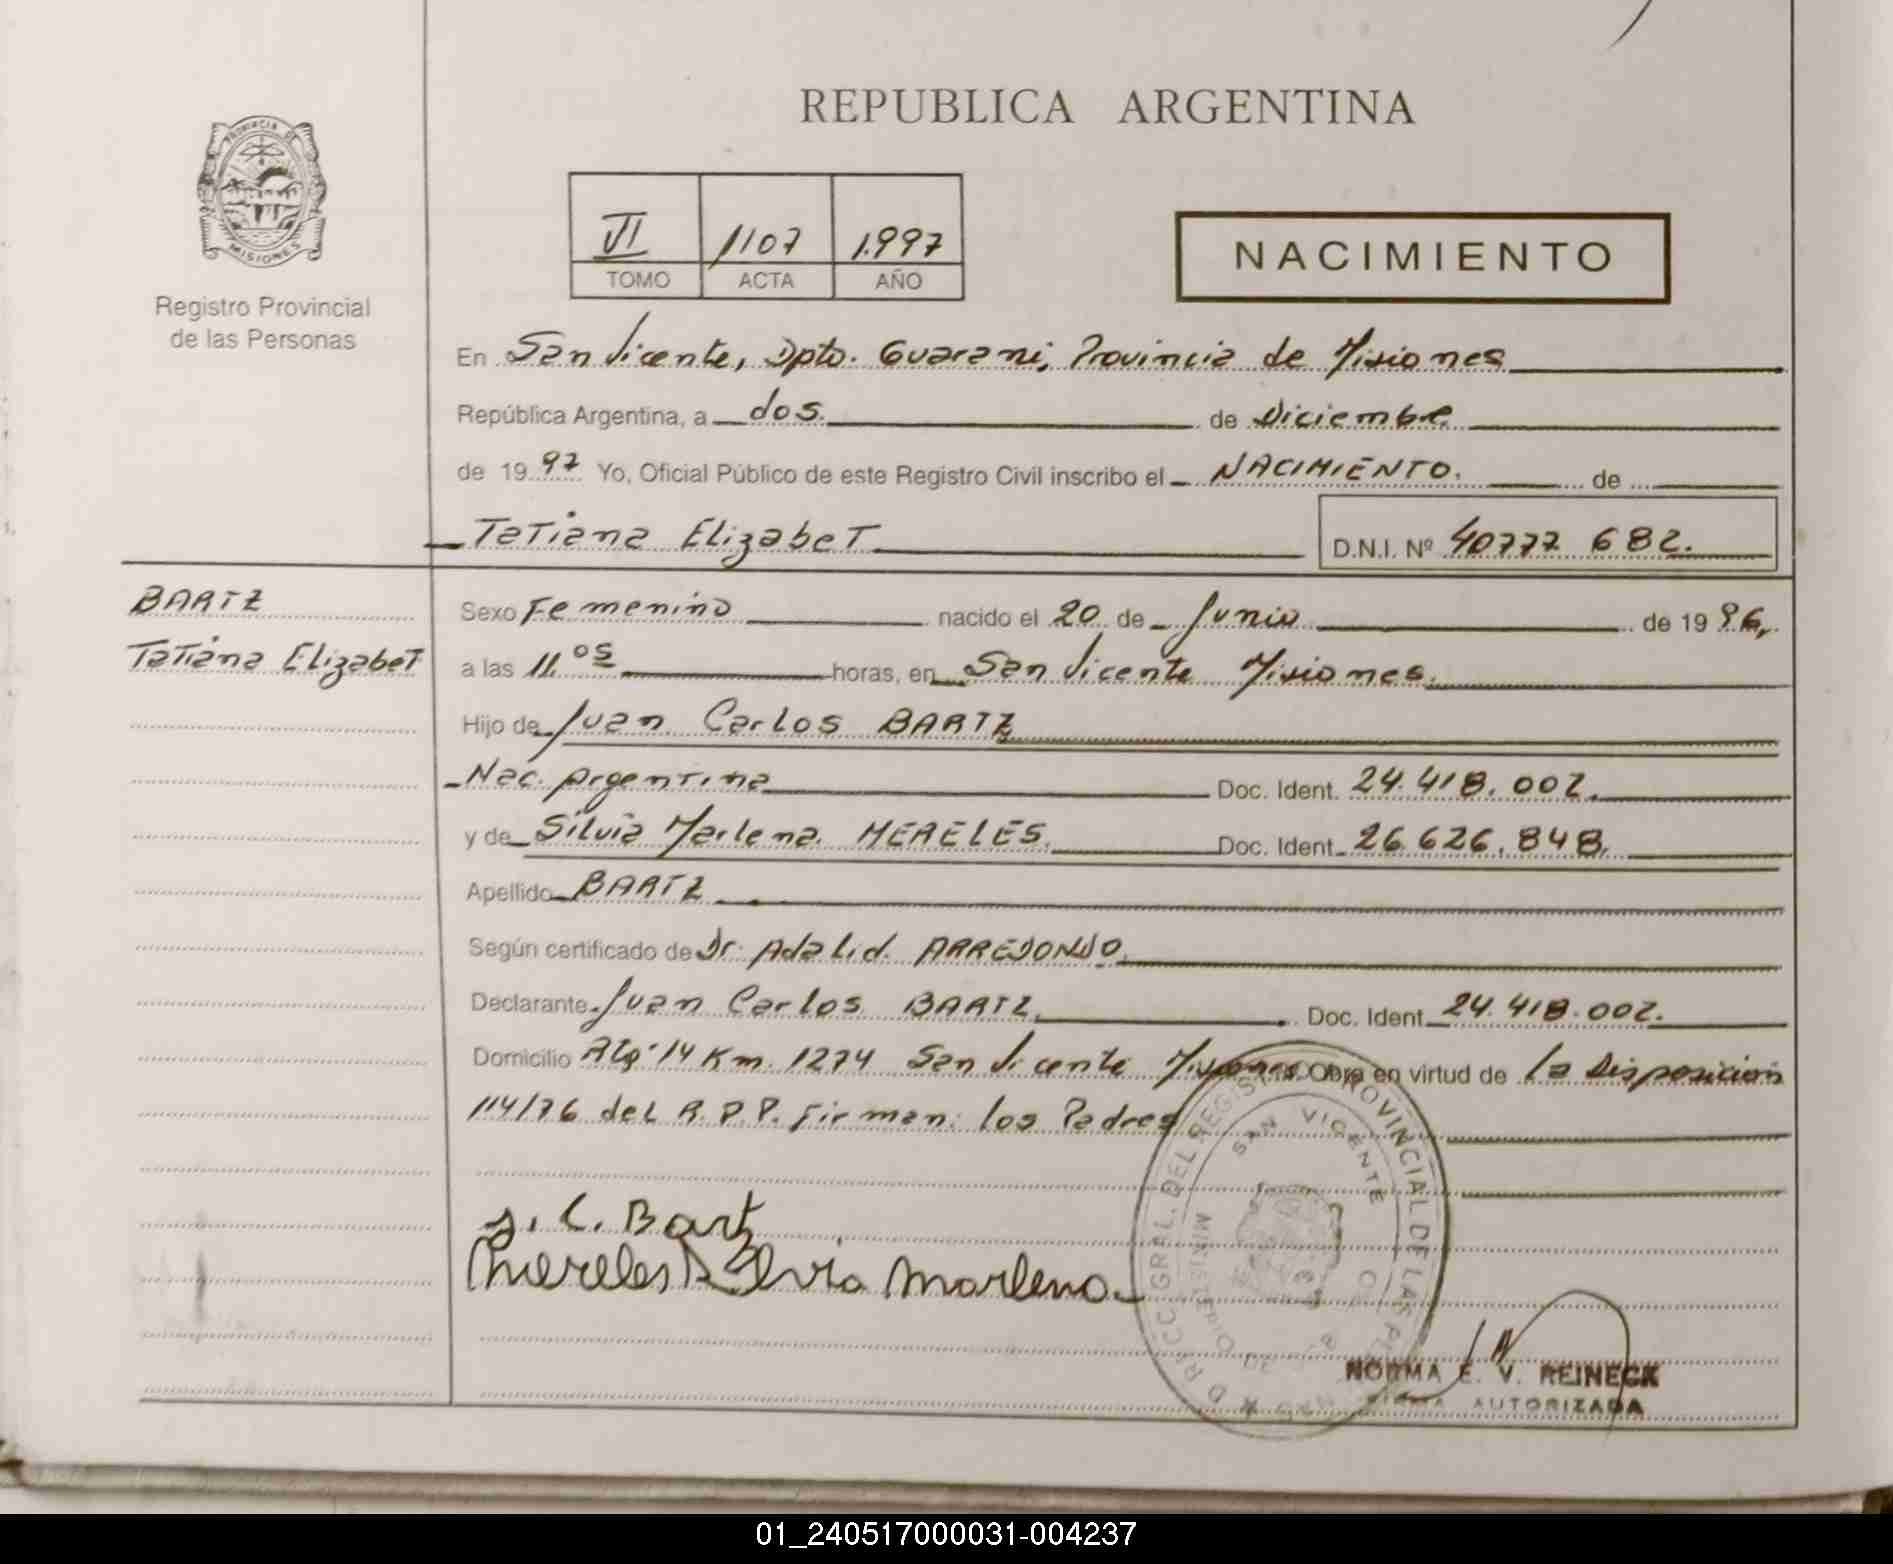 REPUBLICA ARGENTINA
PROVINCIA DE
MISIONES
Registro Provincial
de las Personas
VI 1107 1.997
TOMO ACTA AÑO
NACIMIENTO
En San Vicente, Dpto. Guarani, Provincia de Misiones
República Argentina, a dos. de Diciembre
de 1997 Yo, Oficial Público de este Registro Civil inscribo el NACIMIENTO. de
Tatiana Elizabet D.N.I. Nº 40777 682.
BARTZ
Tatiana Elizabet
Sexo Femenino nacido el 20 de Junio de 1996,
a las 11.05 horas, en San Vicente Misiones.
Hijo de Juan Carlos BARTZ
Nac. Argentina Doc. Ident. 24.418.002.
y de Silvia Marlena MERELES. Doc. Ident. 26.626.848.
Apellido BARTZ
Según certificado de Dr. Adalid. ARREDONDO.
Declarante Juan Carlos BARTZ. Doc. Ident. 24.418.002.
Domicilio 14 Km. 1274 San Vicente Misiones. Obra en virtud de la Disposicion
114/76 del R.P.P. Firman: los Padres
J. C. Bartz
Mereles Silvia Marlena
GRAL. DEL REGISTRO PROVINCIAL DE LAS
SAN VICENTE
NORMA E. V. REINECK
FIRMA AUTORIZADA
01_240517000031-004237